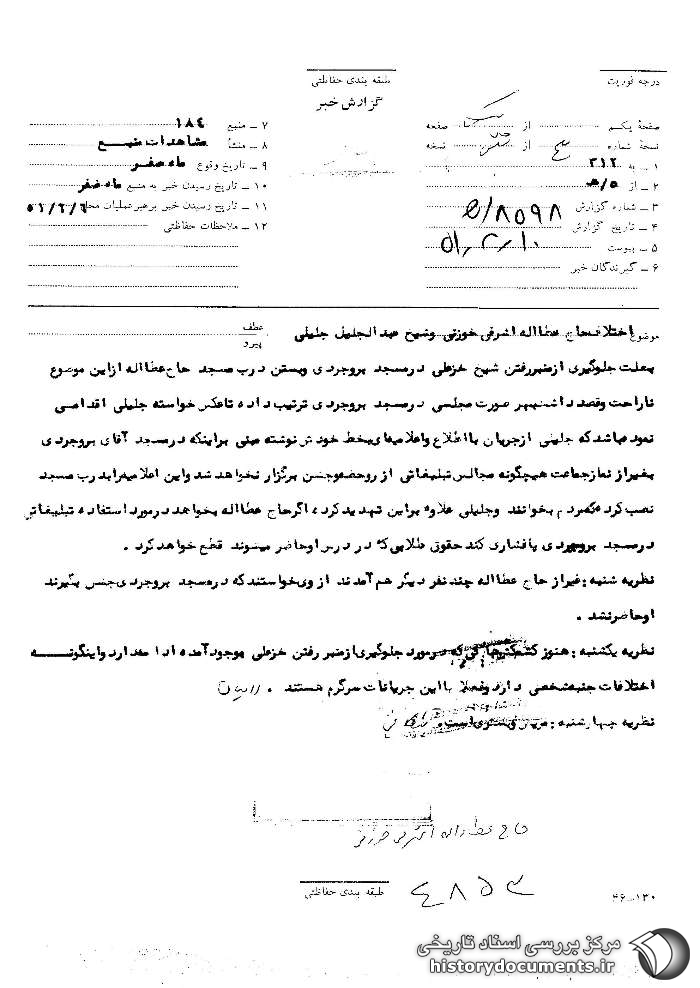 درجه فوریت
طبقه بندی حفاظتی
گزارش خبر
صفحهٔ یکم از یک صفحه
نسخهٔ شماره از نسخه
۱ ـ به ۳۱۲
۲ ـ از ۵/ه‍
۳ ـ شماره گزارش ۸۵۹۸/ه‍
۴ ـ تاریخ گزارش ۵۱٫۲٫۱۰
۵ ـ پیوست
۶ ـ گیرندگان خبر
۷ ـ منبع ۱۸۴
۸ ـ منشأ مشاهدات منبع
۹ ـ تاریخ وقوع ماه صفر
۱۰ ـ تاریخ رسیدن خبر به منبع ماه صفر
۱۱ ـ تاریخ رسیدن خبر برهبر عملیات محل
۱۲ ـ ملاحظات حفاظتی
موضوع اختلاف حاج عطااله اشرفی خوزتی وشیخ عبدالجلیل جلیلی
عطف
پیرو
بعلت جلوگیری ازمنبررفتن شیخ خزعلی درمسجد بروجردی وبستن درب مسجد حاج عطااله ازاین موضوع
ناراحت وقصد داشته صورت مجلسی درمسجد بروجردی ترتیب داده تاعکس خواسته جلیلی اقدامی
نموده باشد که جلیلی ازجریان بااطلاع واعلامیه‌ای بخط خودش نوشته مبنی براینکه درمسجد آقای بروجردی
بغیراز نمازجماعت هیچگونه مجالس تبلیغاتی از روضه وجشن برگزار نخواهد شد واین اعلامیه رابدرب مسجد
نصب کرده که مردم بخوانند وجلیلی علاوه براین تهدید کرده اگرحاج عطااله بخواهد درمورد استفاده تبلیغاتی
درمسجد بروجردی پافشاری کند حقوق طلابی که در درس اوحاضر میشوند قطع خواهد کرد .
نظریه شنبه : غیراز حاج عطااله چند نفر دیگر هم آمدند از وی خواستند که درمسجد بروجردی جشن بگیرند
اوحاضرنشد .
نظریه یکشنبه : هنوز که درمورد جلوگیری ازمنبر رفتن خزعلی بوجود آمده ادامه دارد واینگونه
اختلافات جنبه شخصی دارد وفعلا بااین جریانات سرگرم هستند .
نظریه چهارشنبه :
حاج عطااله اشرفی خوزتی
طبقه بندی حفاظتی
۴۸۵۳
۱۳۰ـ۴۶
مرکز بررسی اسناد تاریخی
historydocuments.ir